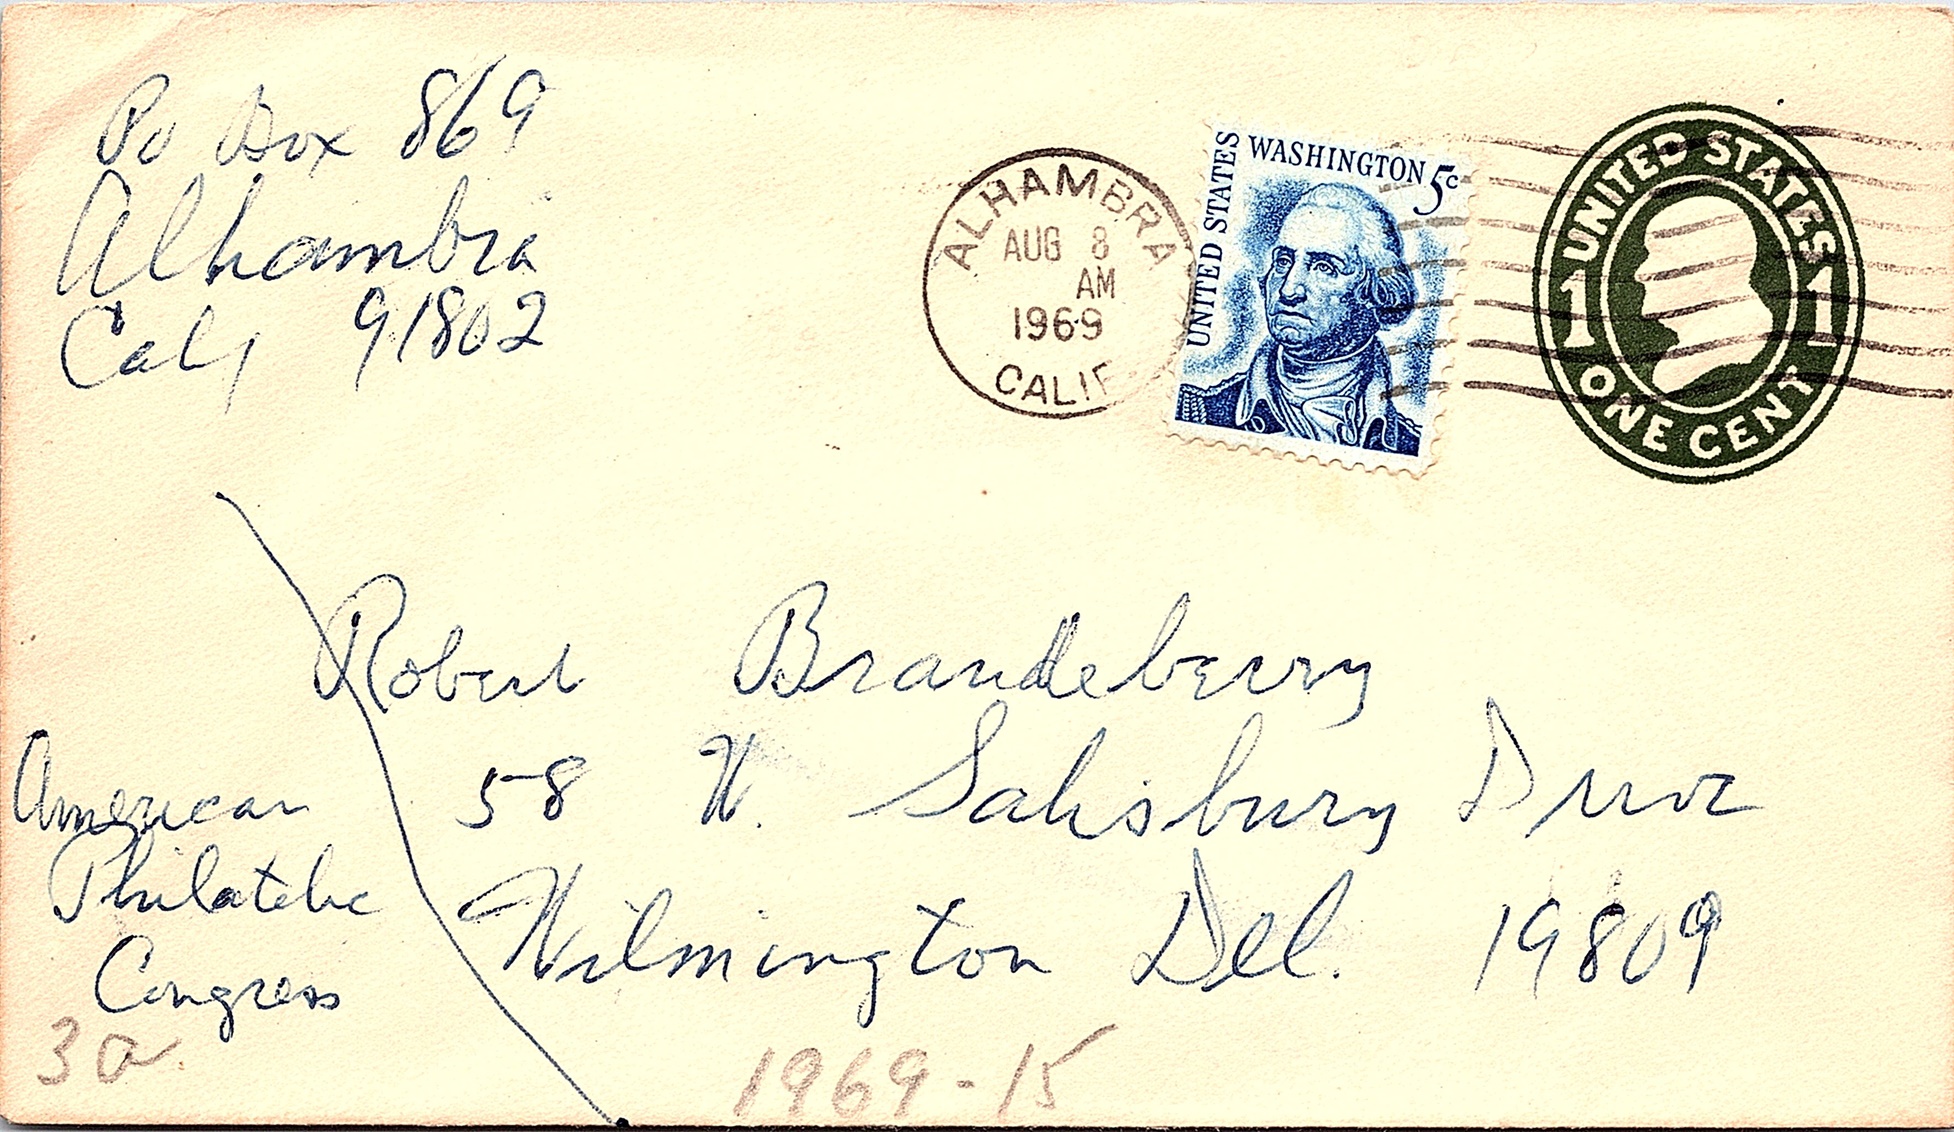 Po Box 869
Alhambra
Calif 91802
ALHAMBRA
AUG 8
AM
1969
CALIF
UNITED STATES
WASHINGTON 5c
UNITED STATES
1 1
ONE CENT
Robert Brandeberry
58 W. Salisbury Drive
Wilmington Del. 19809
American
Philatelic
Congress
3a.
1969-15